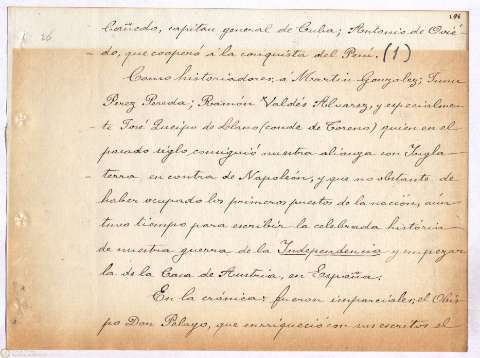 Cañedo, capitan general de Cuba; Antonio de Ovie-
do, que cooperó á la conquista del Perú. (1)
Como historiadores, á Martin Gonzalez; Juan
Perez Pereda; Ramón Valdés Alvarez, y especialmen-
te José Queipo de Llano (conde de Toreno) quien en el
pasado siglo, consiguió nuestra alianza con Ingla-
terra en contra de Napoleón, y que no obstante de
haber ocupado los primeros puestos de la nacion, aún
tuvo tiempo para escribir la celebrada história
de nuestra guerra de la Independencia y empezar
la de la Casa de Austria, en España.
En la crónica fueron imparciales, el Obis-
po Don Pelayo, que enriqueció con sus escritos el